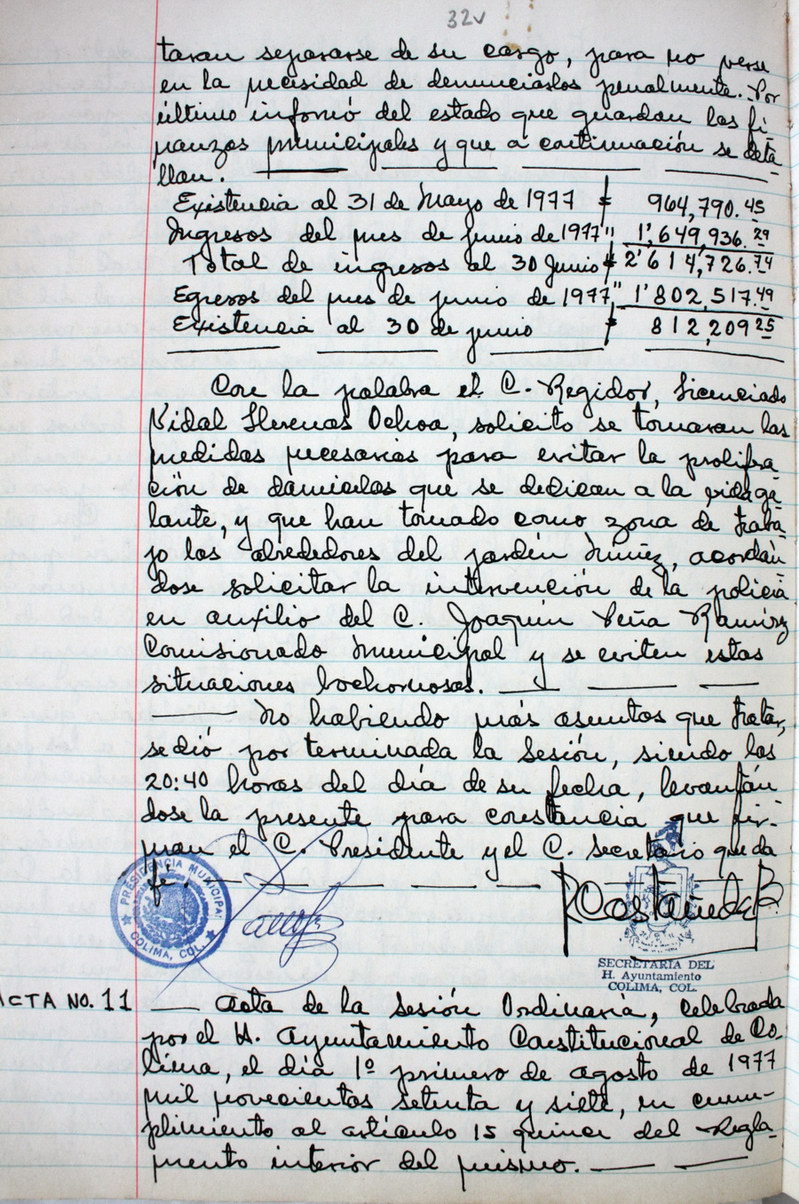 32v
taran separarse de su cargo, para no verse
en la necesidad de denunciarlos penalmente. Por
último informó del estado que guardan las fi
nanzas municipales y que a continuación se deta-
llan.
Existencia al 31 de Mayo de 1977 $ 964,790.45
Ingresos del mes de junio de 1977 " 1'649,936.29
Total de ingresos al 30 Junio $ 2'614,726.74
Egresos del mes de junio de 1977 " 1'802,517.49
Existencia al 30 de junio $ 812,209 25
Con la palabra el C. Regidor, Licenciado
Vidal Llerenas Ochoa, solicito se tomaran las
medidas necesarias para evitar la prolifra
ción de damicelas que se dedican a la vida ga
lante, y que han tomado como zona de traba-
jo los alrededores del jardín Núñez, acordan
dose solicitar la intervención de la policia
en auxilio del C. Joaquín Peña Ramírez
Comisionado Municipal y se eviten estas
situaciones bochornosas.
No habiendo más asuntos que tratar,
se dió por terminada la Sesión, siendo las
20:40 horas del día de su fecha, levantán
dose la presente para constancia que fir-
man el C. Presidente y el C. Secretario que da
fé.
PRESIDENCIA MUNICIPAL
COLIMA, COL.
RCastañeda B.
SECRETARIA DEL
H. Ayuntamiento
COLIMA, COL.
ACTA NO. 11 Acta de la Sesión Ordinaria, celebrada
por el H. Ayuntamiento Constitucional de Co-
lima, el día 1º primero de agosto de 1977
mil novecientos setenta y siete, en cum-
plimiento al artículo 15 quince del Regla-
mento interior del mismo.